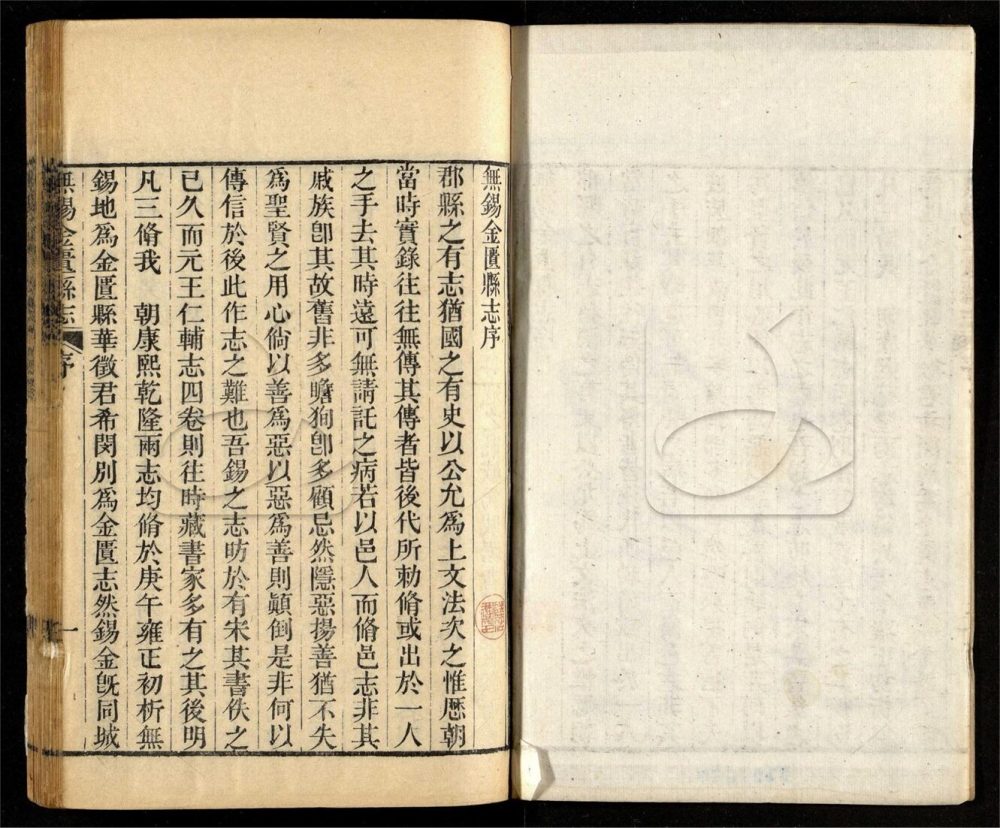 無錫金匱縣志序
郡縣之有志猶國之有史以公允爲上文法次之惟歷朝
當時實錄往往無傳其傳者皆後代所勅脩或出於一人
之手去其時遠可無請託之病若以邑人而脩邑志非其
戚族卽其故舊非多瞻狥卽多顧忌然隱惡揚善猶不失
爲聖賢之用心倘以善爲惡以惡爲善則顚倒是非何以
傳信於後此作志之難也吾錫之志昉於有宋其書佚之
已久而元王仁輔志四卷則往時藏書家多有之其後明
凡三脩我　朝康熙乾隆兩志均脩於庚午雍正初析無
錫地爲金匱縣華徵君希閔別爲金匱志然錫金旣同城
無錫金匱縣志　序　一